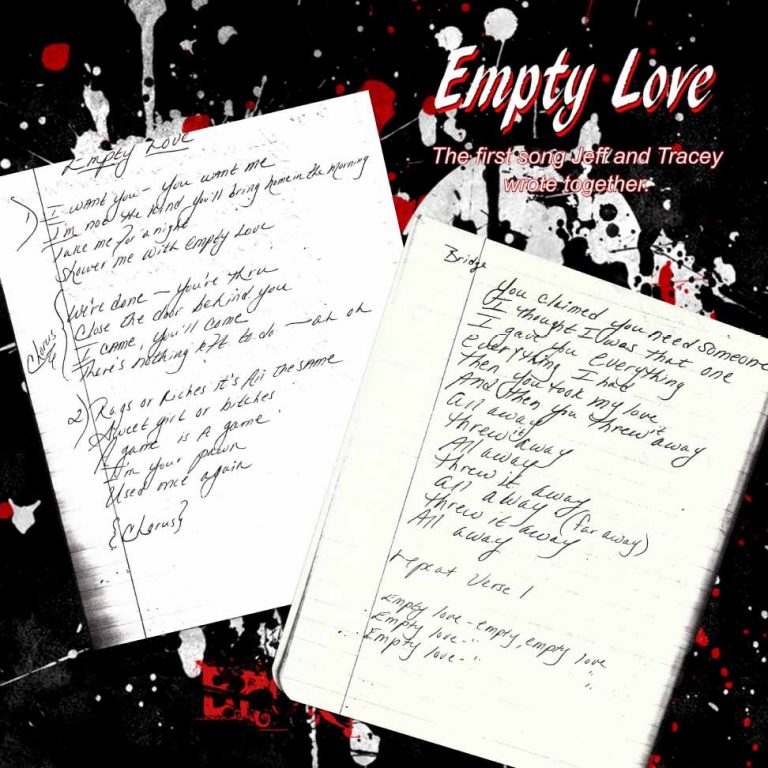 Empty Love
The first song Jeff and Tracey
wrote together
Empty Love
1) I want you - you want me
I'm not the kind you'll bring home in the morning
Take me for a night
Shower me with Empty Love
Chorus
We're done - you're thru
Close the door behind you
I came, you'll come
There's nothing left to do - ah oh
2) Rags or Riches it's All the same
Sweet girl or bitches
A game is A game
I'm your pawn
Used once again
{Chorus}
Bridge
You claimed you need someone
I thought I was that one
I gave you everything
everything I had
Then you took my love
And then you threw it away
All away
threw it away
All away
threw it away
All away (far away)
threw it away
All away
repeat Verse 1
Empty love - empty, empty love
Empty love - " "
Empty love - " "